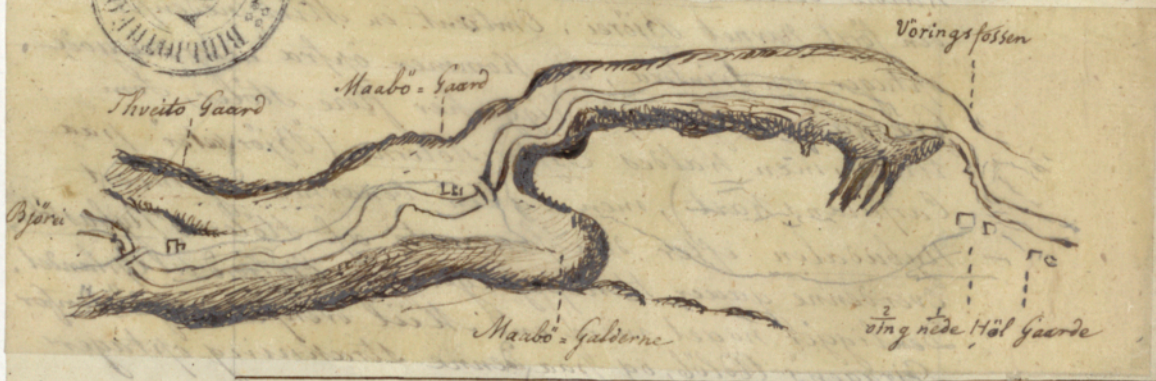 BIBLIOTHEQ
Vöringsfossen
Maabö = Gaard
Thveito Gaard
Björéi
Maabö = Galderne
2 1
öfng nede Höl Gaarde